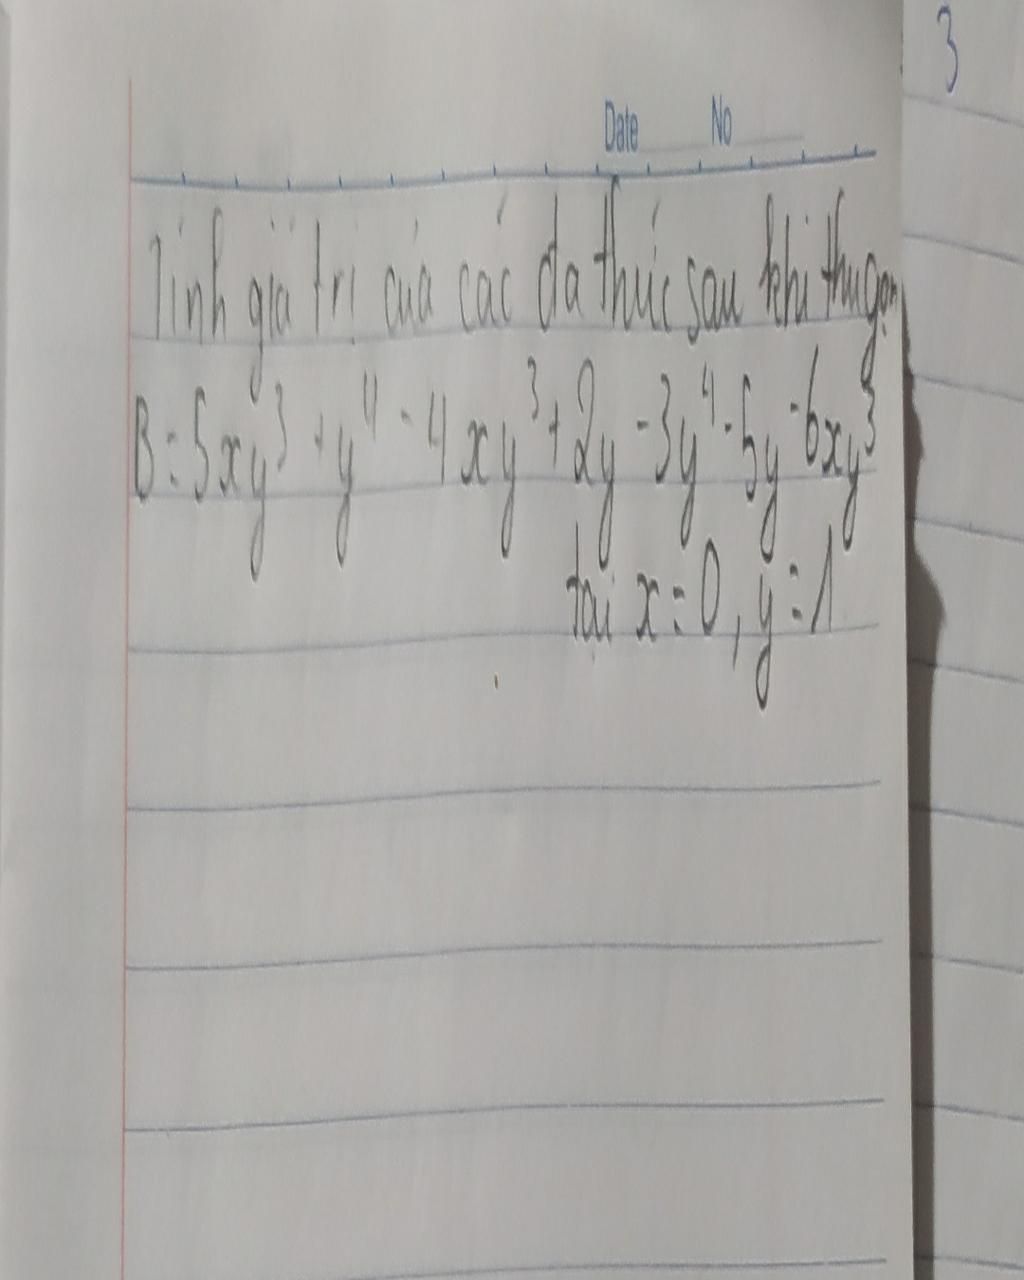 3
Date No
Tính giá trị của các đa thức sau khi thu gọn
B = 5xy³ + y⁴ - 4xy³ + 2y - 3y⁴ - 5y - 6xy³
tại x = 0, y = 1